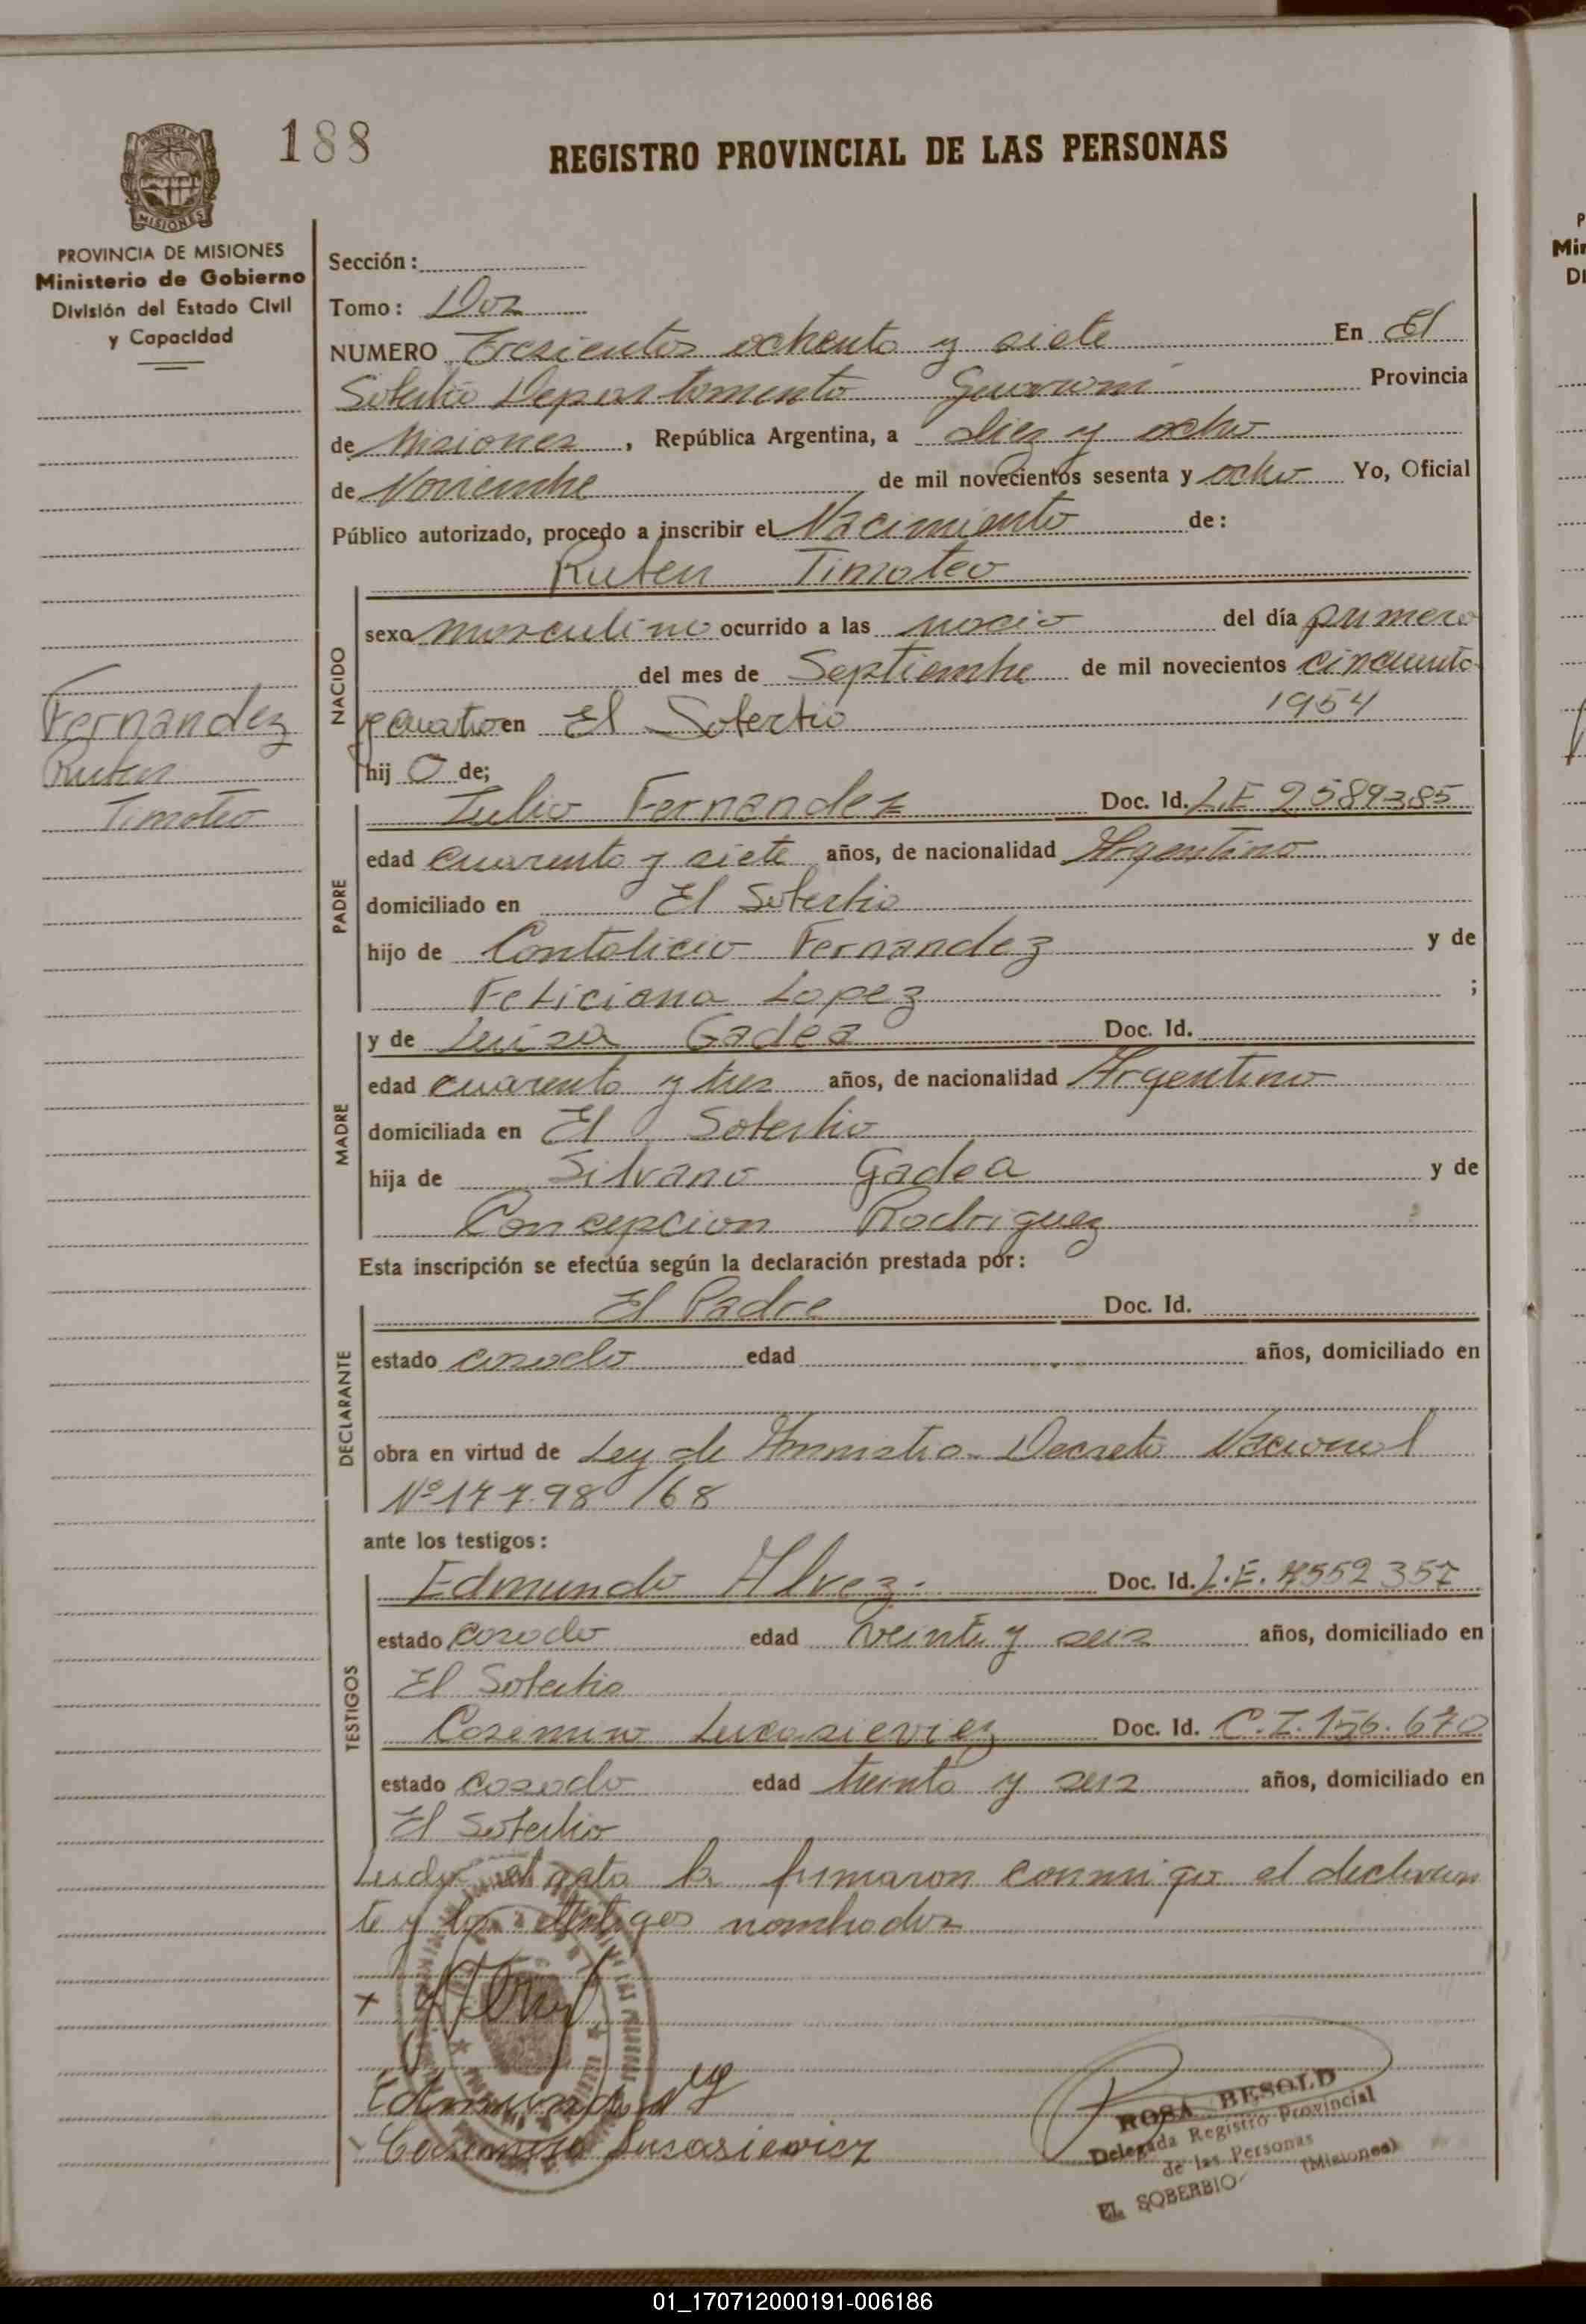 188
REGISTRO PROVINCIAL DE LAS PERSONAS
PROVINCIA DE MISIONES
MISIONES
Ministerio de Gobierno
División del Estado Civil
y Capacidad
Sección:
Tomo: Dos
NUMERO Tresientos ochenta y siete En El
Soberbio Departamento Guarani Provincia
de Misiones, República Argentina, a diez y ocho
de Noviembre de mil novecientos sesenta y ocho Yo, Oficial
Público autorizado, procedo a inscribir el Nacimiento de:
Ruben Timoteo
NACIDO
sexo masculino ocurrido a las del día primero
del mes de Septiembre de mil novecientos cincuenta
y cuatro en El Soberbio 1954
hij o de;
Fernandez
Ruben
Timoteo
PADRE
Julio Fernandez Doc. Id. L.E 2589385
edad cuarenta y siete años, de nacionalidad Argentino
domiciliado en El Soberbio
hijo de Fernandez y de
Feliciana Lopez ;
MADRE
y de Luisa Gadea Doc. Id.
edad cuarenta y tres años, de nacionalidad Argentino
domiciliada en El Soberbio
hija de Silvano Gadea y de
Concepcion Rodriguez
Esta inscripción se efectúa según la declaración prestada por:
DECLARANTE
El Padre Doc. Id.
estado casado edad años, domiciliado en
obra en virtud de Ley de Decreto Nacional
Nº 177.98 /68
ante los testigos:
TESTIGOS
Edmundo Alvez. Doc. Id. L.E.
estado casado edad veinte y seis años, domiciliado en
El Soberbio
Lucasieviez Doc. Id. C.I. 156.670
estado casado edad treinta y seis años, domiciliado en
El Soberbio
Leido el acta la firmaron conmigo el declaran
te y los testigos nombrados
Edmundo
Lucasiewicz
ROSA BESOLD
Delegada Registro Provincial
de las Personas
EL SOBERBIO (Misiones)
01_170712000191-006186